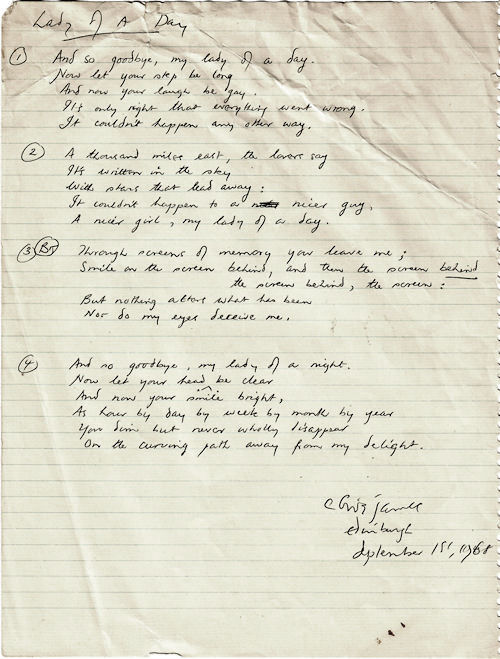 Lady Of A Day
① And so goodbye, my lady of a day.
Now let your step be long
And now your laugh be gay.
It's only right that everything went wrong.
It couldn't happen any other way.
② A thousand miles east, the lovers say
It's written in the sky
With stars that lead away:
It couldn't happen to a nicer guy,
A nicer girl, my lady of a day.
③ Through screens of memory you leave me;
Smile on the screen behind, and then the screen behind
the screen behind, the screen:
But nothing alters what has been
Nor do my eyes deceive me.
④ And so goodbye, my lady of a night.
Now let your head be clear
And now your smile bright,
As hour by day by week by month by year
You dim but never wholly disappear
On the curving path away from my delight.
Clive James
Edinburgh
September 1st, 1968